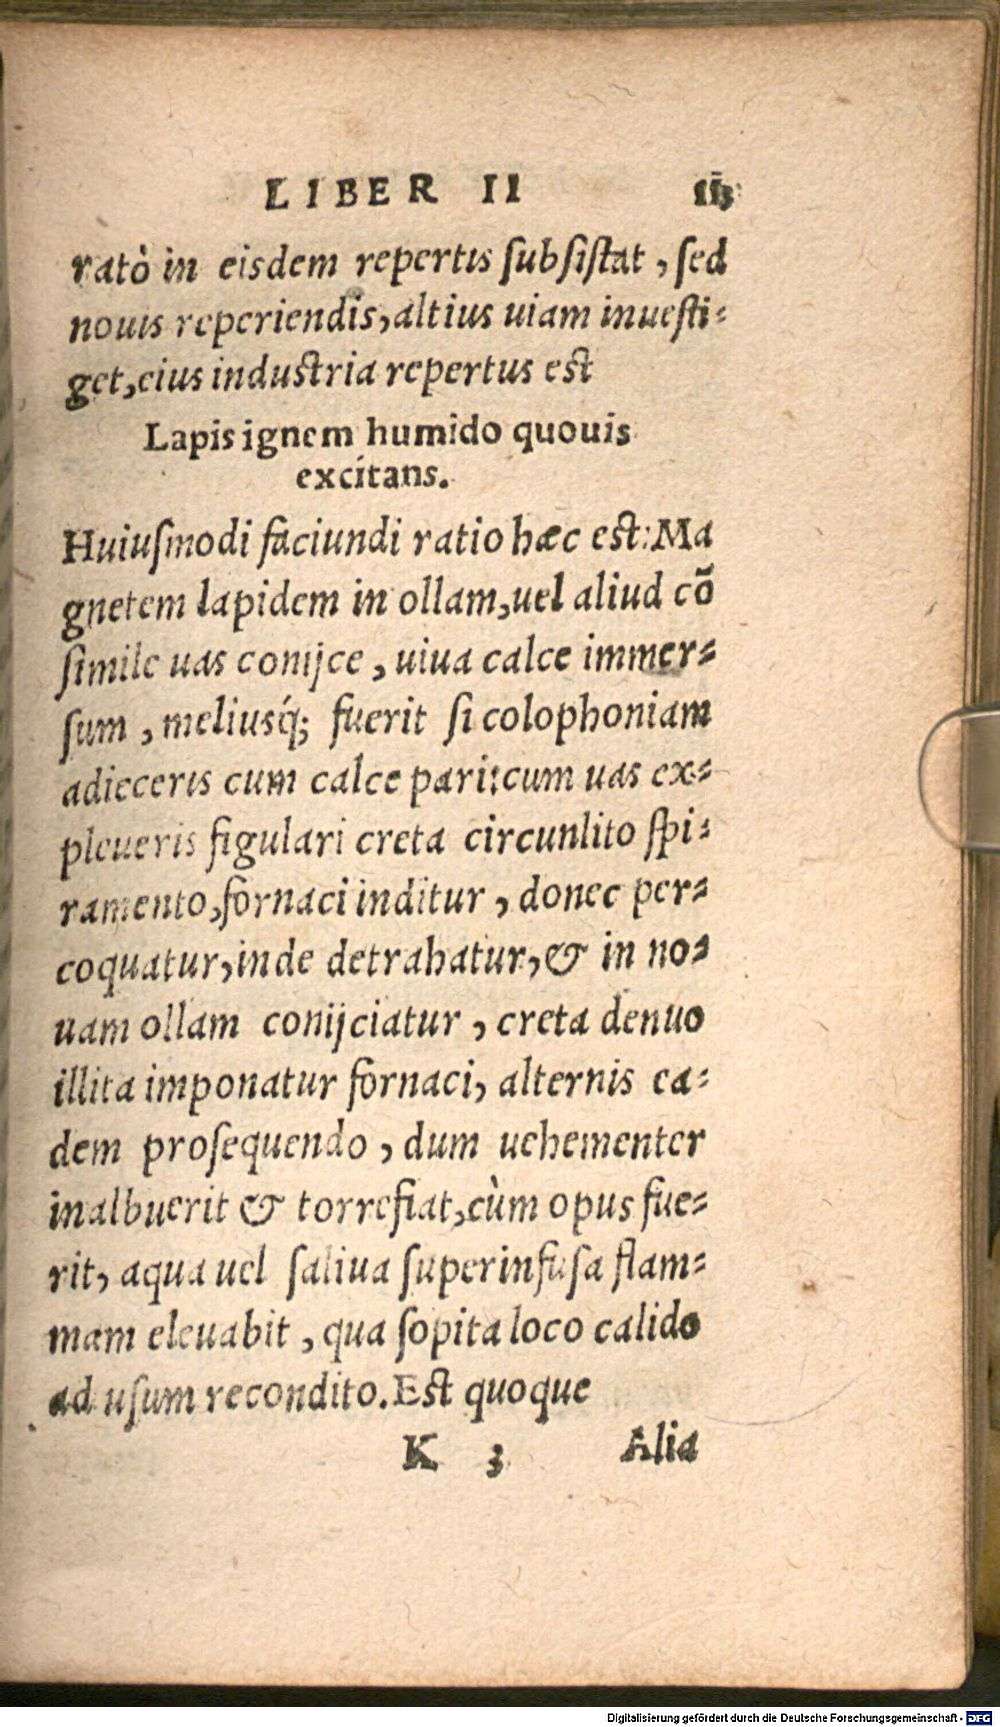 LIBER II
ratò in eisdem repertis subsistat, sed
nouis reperiendis, altius uiam inuesti-
get, eius industria repertus est
Lapis ignem humido quouis
excitans.
Huiusmodi faciundi ratio hæc est: Ma
gnetem lapidem in ollam, uel aliud cõ
simile uas conijce, uiua calce immer-
sum, meliusq́; fuerit si colophoniam
adieceris cum calce pari: cum uas ex-
pleueris figulari creta circunlito spi-
ramento, fornaci inditur, donec per-
coquatur, inde detrahatur, & in no-
uam ollam conijciatur, creta denuo
illita imponatur fornaci, alternis ea-
dem prosequendo, dum uehementer
inalbuerit & torrefiat, cùm opus fue-
rit, aqua uel saliua superinfusa flam-
mam eleuabit, qua sopita loco calido
ad usum recondito. Est quoque
K 3 Alia
Digitalisierung gefördert durch die Deutsche Forschungsgemeinschaft - DFG